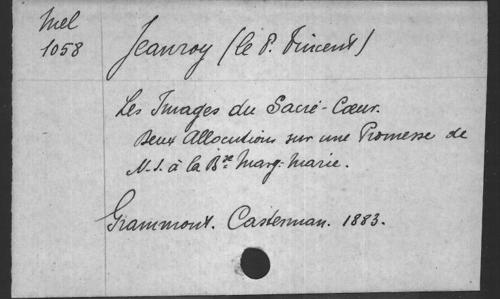 Mel
1058
Jeanroy (le P. Vincent)
Les Images du Sacré-Cœur.
Deux Allocutions sur une Promesse de
N.-S. à la Bse Marg.-Marie.
Grammont. Casterman. 1883.